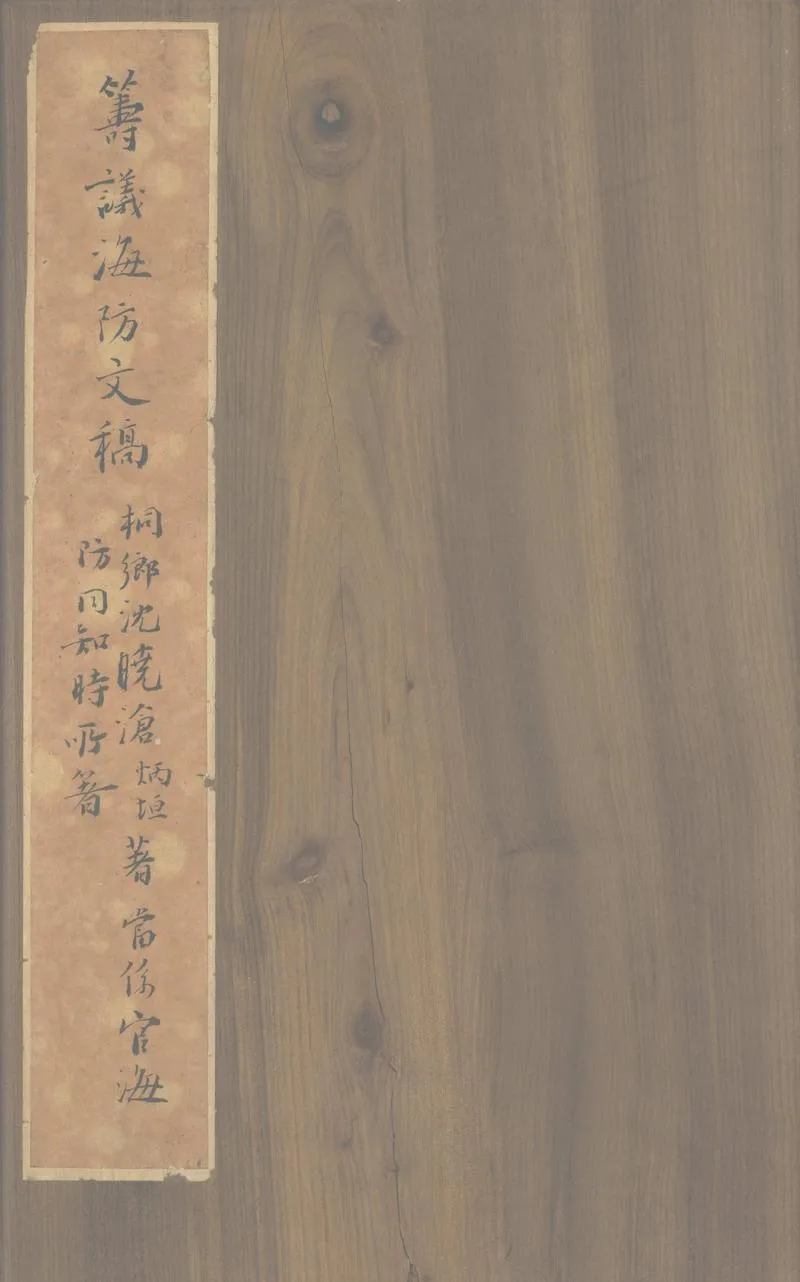 籌議海防文稿
桐鄉沈曉滄炳垣著當係官海
防同知時所著